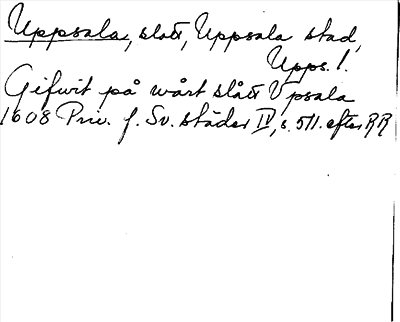 Uppsala, slott, Uppsala stad,
Upps. l.
Gifwit på wårt slått Vpsala
1608 Priv. f. Sv. städer IV, s. 571. efter RR